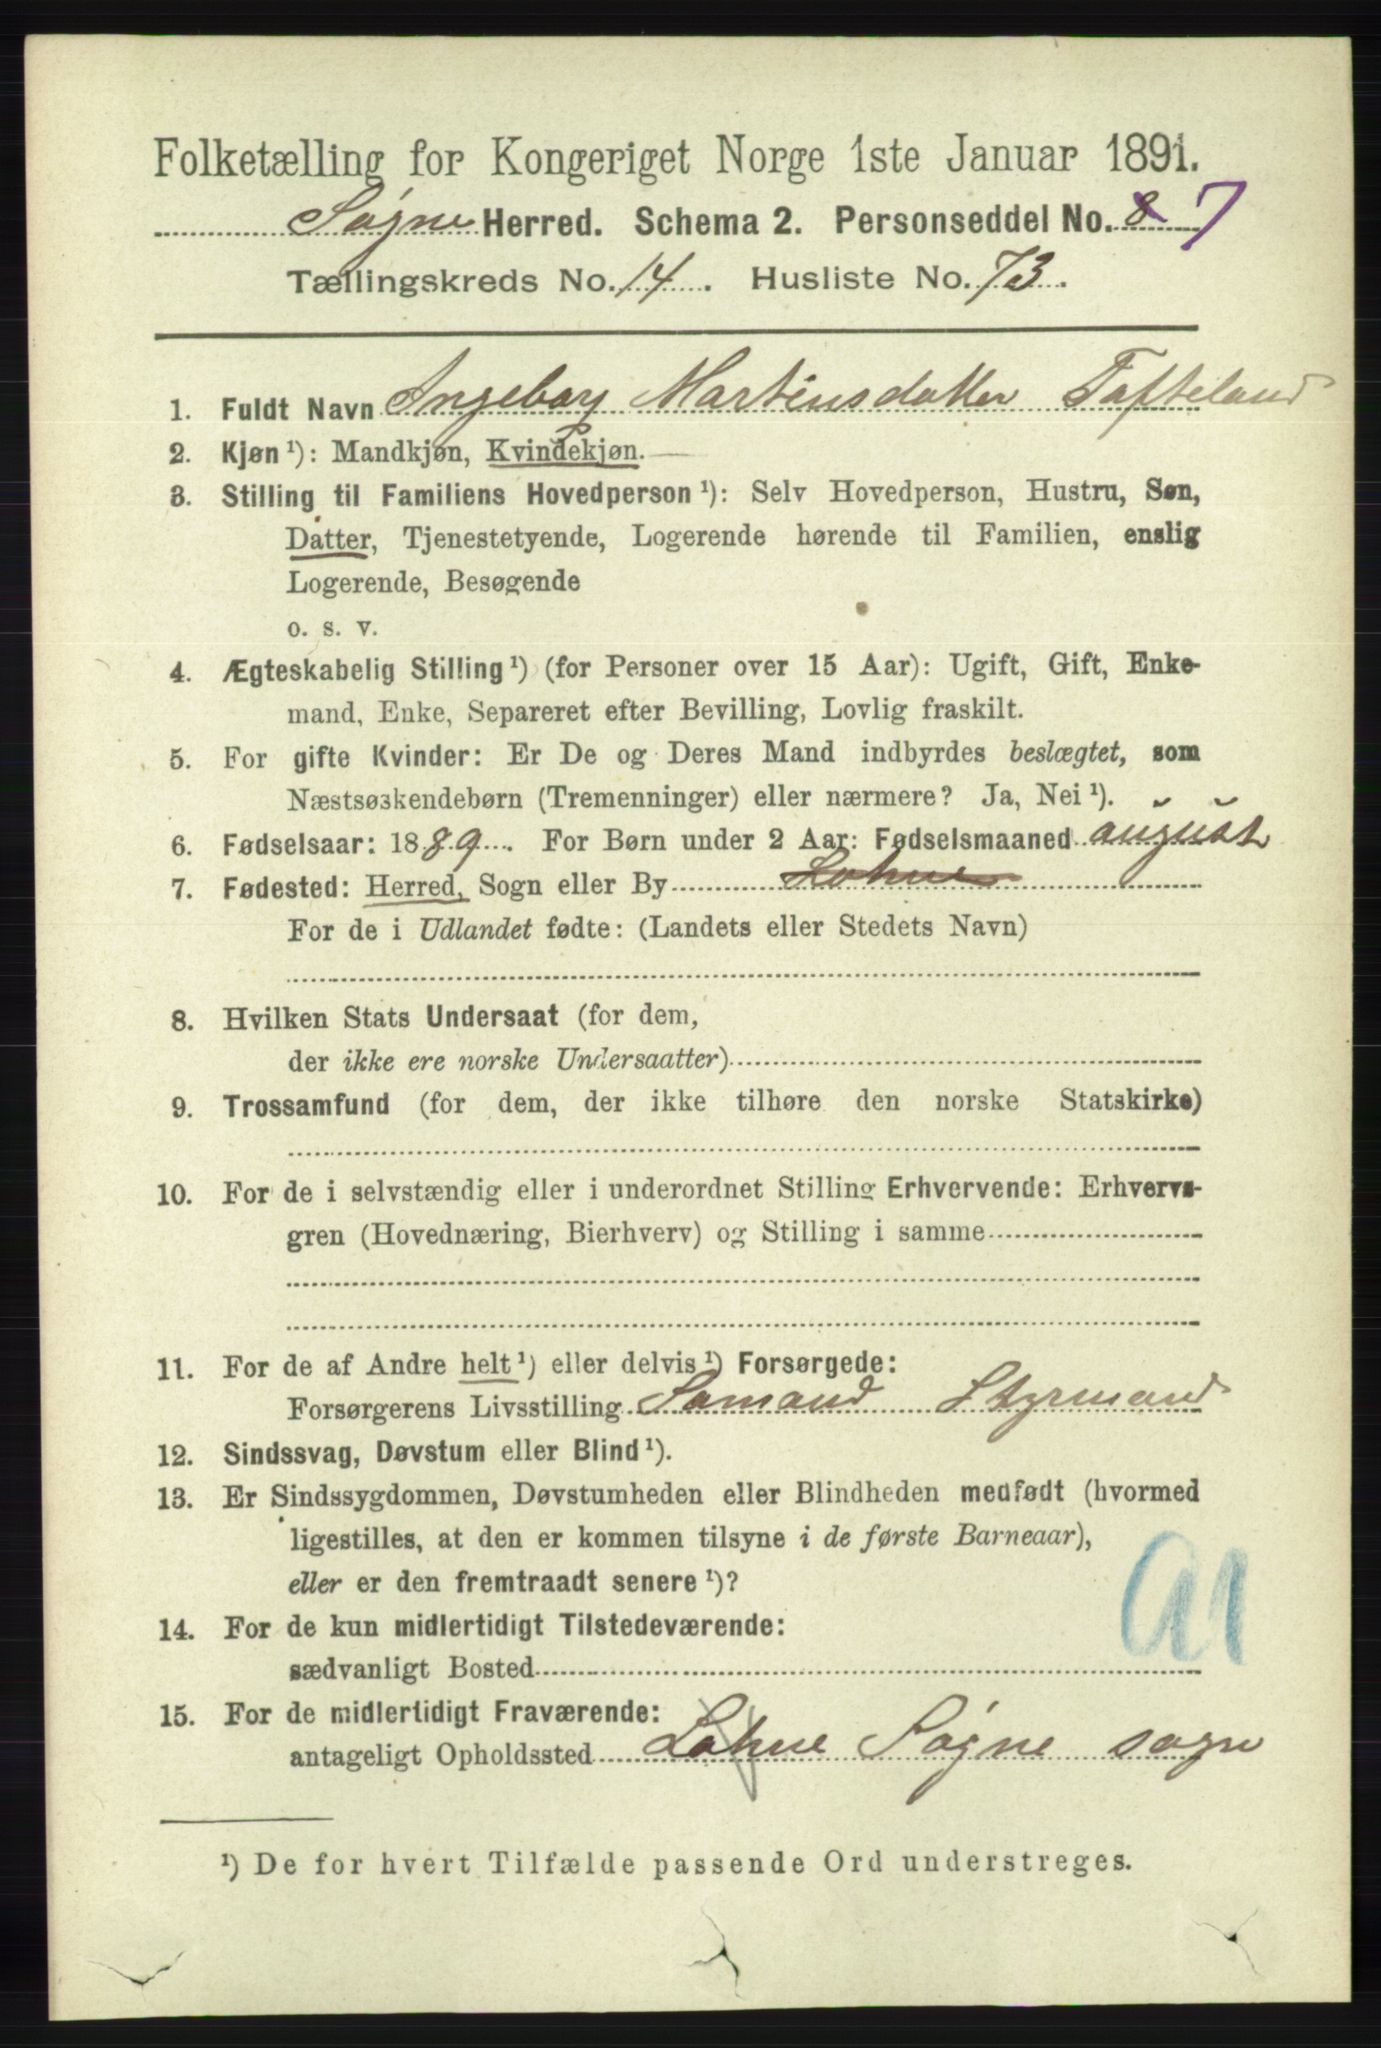 Folketælling for Kongeriget Norge 1ste Januar 1891.
Søgne Herred. Schema 2. Personseddel No. 8 7
Tællingskreds No. 14. Husliste No. 73.
1. Fuldt Navn Ingeborg Martinsdatter Tofteland
2. Kjøn¹): Mandkjøn, Kvindekjøn.
3. Stilling til Familiens Hovedperson¹): Selv Hovedperson, Hustru, Søn,
Datter, Tjenestetyende, Logerende hørende til Familien, enslig
Logerende, Besøgende
o. s. v.
4. Ægteskabelig Stilling¹) (for Personer over 15 Aar): Ugift, Gift, Enke-
mand, Enke, Separeret efter Bevilling, Lovlig fraskilt.
5. For gifte Kvinder: Er De og Deres Mand indbyrdes beslægtet, som
Næstsøskendebørn (Tremenninger) eller nærmere? Ja, Nei¹).
6. Fødselsaar: 1889. For Børn under 2 Aar: Fødselsmaaned august
7. Fødested: Herred, Sogn eller By Lohne
For de i Udlandet fødte: (Landets eller Stedets Navn)
8. Hvilken Stats Undersaat (for dem,
der ikke ere norske Undersaatter)
9. Trossamfund (for dem, der ikke tilhøre den norske Statskirke)
10. For de i selvstændig eller i underordnet Stilling Erhvervende: Erhvervs-
gren (Hovednæring, Bierhverv) og Stilling i samme
11. For de af Andre helt¹) eller delvis¹) Forsørgede:
Forsørgerens Livsstilling Sømand Styrmand
12. Sindssvag, Døvstum eller Blind¹).
13. Er Sindssygdommen, Døvstumheden eller Blindheden medfødt (hvormed
ligestilles, at den er kommen tilsyne i de første Barneaar),
eller er den fremtraadt senere¹)?
14. For de kun midlertidigt Tilstedeværende:
sædvanligt Bosted
15. For de midlertidigt Fraværende:
antageligt Opholdssted Lohne Søgne sogn
¹) De for hvert Tilfælde passende Ord understreges.